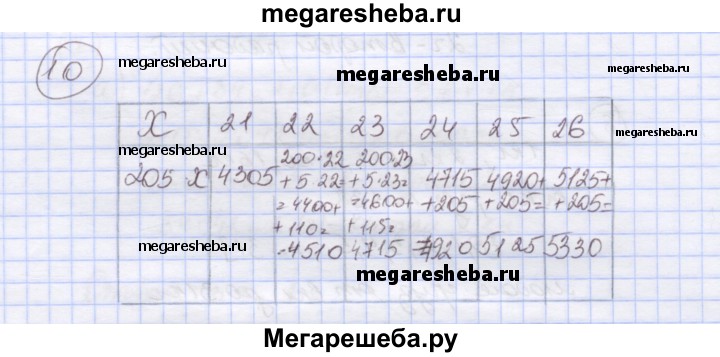 megaresheba.ru
10
megaresheba.ru
megaresheba.ru
X 21 22 23 24 25 26
megaresheba.ru
megaresheba.ru
205·X 4305 200·22 200·23 4715 4920+ 5125+
+5·22= +5·23= +205 +205= +205=
=4400+ =4600+
+110= +115=
=4510 4715 =4920 5125 5330
megaresheba.ru
megaresheba.ru
Мегарешеба.ру